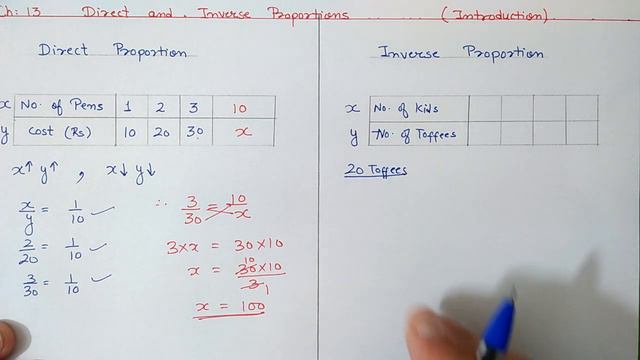 Ch: 13 Direct and Inverse Proportions (Introduction)
Direct Proportion
x No. of Pens 1 2 3 10
y Cost (Rs) 10 20 30 x
x↑ y↑ , x↓ y↓
x/y = 1/10 ✓
2/20 = 1/10 ✓
3/30 = 1/10 ✓
∴ 3/30 = 10/x
3 × x = 30 × 10
x = 30 × 10 / 3 10 1
x = 100
Inverse Proportion
x No. of Kids
y No. of Toffees
20 Toffees